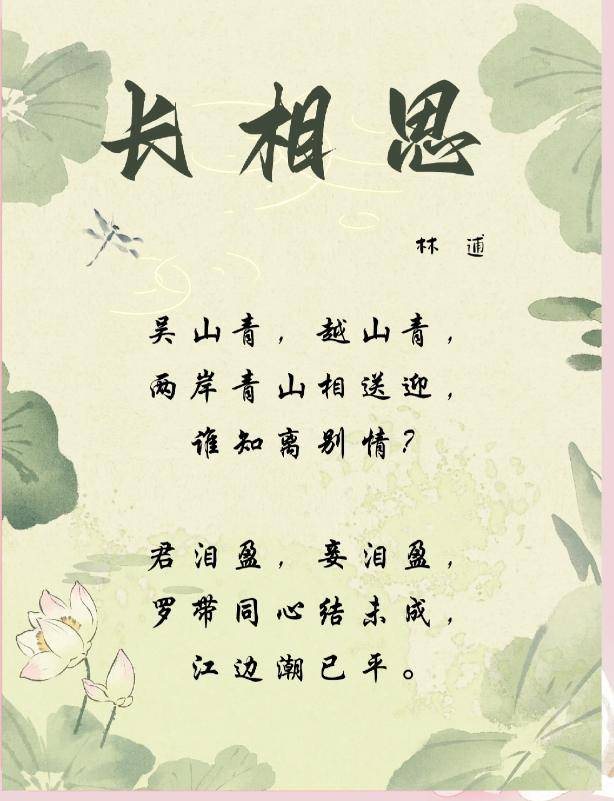 长相思
林逋
吴山青，越山青，
两岸青山相送迎，
谁知离别情？
君泪盈，妾泪盈，
罗带同心结未成，
江边潮已平。